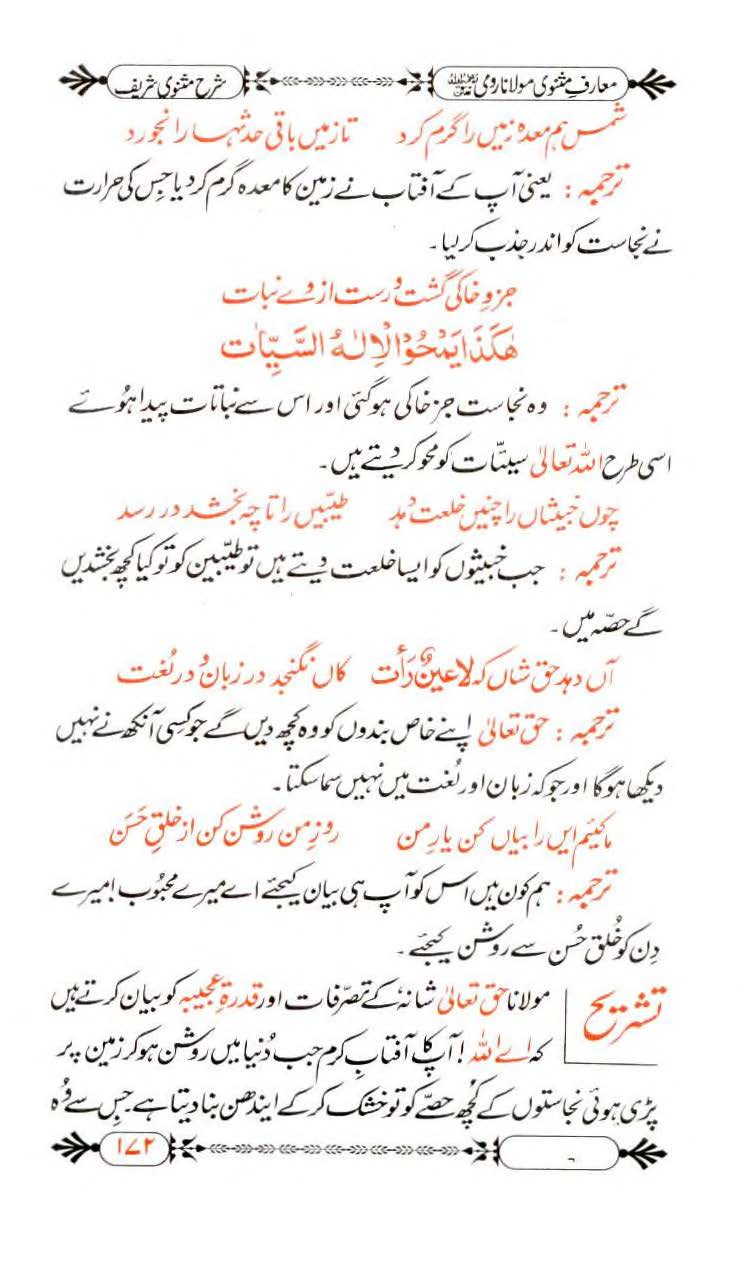 معارفِ مثنوی مولانا رومی رحمۃ اللہ علیہ
شرح مثنوی شریف
شمس ہم معدہ زمیں را گرم کرد تا زمیں باقی حدثہا را نجورد
ترجمہ : یعنی آپ کے آفتاب نے زمین کا معدہ گرم کر دیا جس کی حرارت
نے نجاست کو اندر جذب کر لیا۔
جزوِ خاکی گشت و رست از وے نبات
ھٰکَذَا یَمْحُوا الْاِلٰہُ السَّیِّاٰت
ترجمہ : وہ نجاست جز خاکی ہوگئی اور اس سے نباتات پیدا ہوُئے
اسی طرح اللہ تعالیٰ سیئات کو محو کر دیتے ہیں۔
چوں خبیثاں را چنیں خلعت دہد طیّبیں را تا چہ بخشد در رسد
ترجمہ : جب خبیثوں کو ایسا خلعت دیتے ہیں تو طیّبین کو تو کیا کچھ بخشدیں
گے حصّہ میں۔
آں دہد حق شاں کہ لا عینٌ رَأَت کاں نگنجد در زبان و در لُغت
ترجمہ : حق تعالیٰ اپنے خاص بندوں کو وہ کچھ دیں گے جو کسی آنکھ نے نہیں
دیکھا ہوگا اور جو کہ زبان اور لُغت میں نہیں سما سکتا۔
ما کئیم ایں را بیاں کن یارِ من روزِ من روشن کن از خلقِ حَسَن
ترجمہ : ہم کون ہیں اس کو آپ ہی بیان کیجئے اے میرے محبُوب ! میرے
دِن کو خُلق حُسن سے روشن کیجئے۔
تشریح مولانا حق تعالیٰ شانہٗ کے تصرّفات اور قدرۃِ عجیبہ کو بیان کرتے ہیں
کہ اے اللہ ! آپ کا آفتابِ کرم جب دُنیا میں روشن ہو کر زمین پر
پڑی ہوئی نجاستوں کے کُچھ حصّے کو تو خشک کر کے ایندھن بنا دیتا ہے۔ جِس سے وُہ
۱۷۲